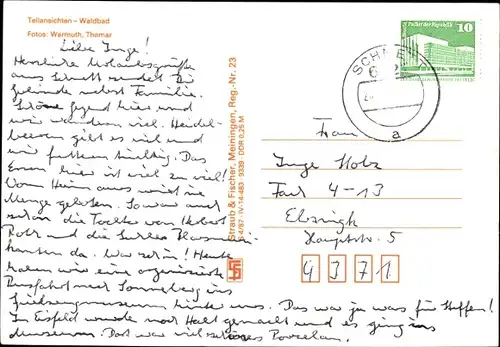 Teilansichten – Waldbad
Fotos: Warmuth, Themar
Liebe Inge!
Herzliche Urlaubsgrüße
aus Schnett sendet Dir
nebst Familie.
Schöne Jugend hier und
wir wandern viel. Heidel-
beeren gibt es viel und
wir futtern tüchtig. Das
Essen hier ist viel zu viel!
Vom Heim aus wird eine
Menge geboten. So war auch
schon die Tochter von Herbert
Roth und die Suhler
kanten da. War schön! Heute
haben wir eine organisierte
Busfahrt nach Sonneberg ins
Spielzeugmuseum hinter uns. Das war ja was für Steffen!
In Eisfeld wurde noch Halt gemacht und es ging ins
museum. Dort war viel schönes Porzellan.
Straub & Fischer, Meiningen, Reg.-Nr. 23
54/67 · IV-14-483 9339 DDR 0,25 M
Palast der Republik
10
SCHNETT
a
Frau
Inge Holz
Fach 4-13
Elsnigk
Hauptstr. 5
4371